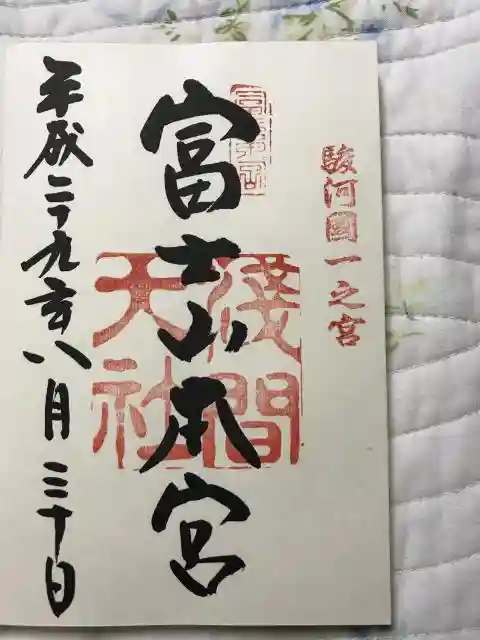 駿河國一之宮
富士山本宮
浅間
大社
平成二十九年八月三十日